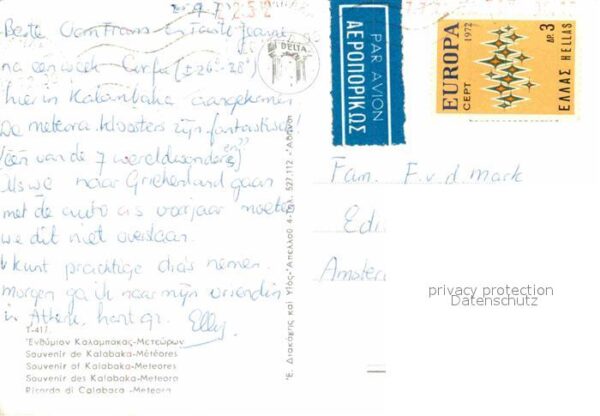 Beste Oom Frans en Tante Jeanne
na een week Corfu (± 26°-28°)
hier in Kalambaka aangekomen
De meteora kloosters zijn fantastisch!
(één van de 7 wereldwonderen)
Als we naar Griekenland gaan
met de auto a.s. voorjaar moeten
we dit niet overslaan.
kunt prachtige dia's nemen.
morgen ga ik naar mijn vrienden
in Athene, hart. gr. Elly
T-417.
Ἐνθύμιον Καλαμπάκας-Μετεώρων
Souvenir de Kalabaka-Météores
Souvenir of Kalabaka-Meteora
Souvenir des Kalabaka-Meteora
Ricordo di Calabaca -Meteora
Ἐ. Διακάκης καὶ Υἱός-Ἀπελλοῦ 4-τηλ. 527.112 -Ἀθῆναι
DELTA
PAR AVION
ΑΕΡΟΠΟΡΙΚΩΣ
EUROPA
CEPT 1972
ΕΛΛΑΣ HELLAS
ΔΡ. 3
Fam. F.v.d. mark
Edi
Amster
privacy protection
Datenschutz